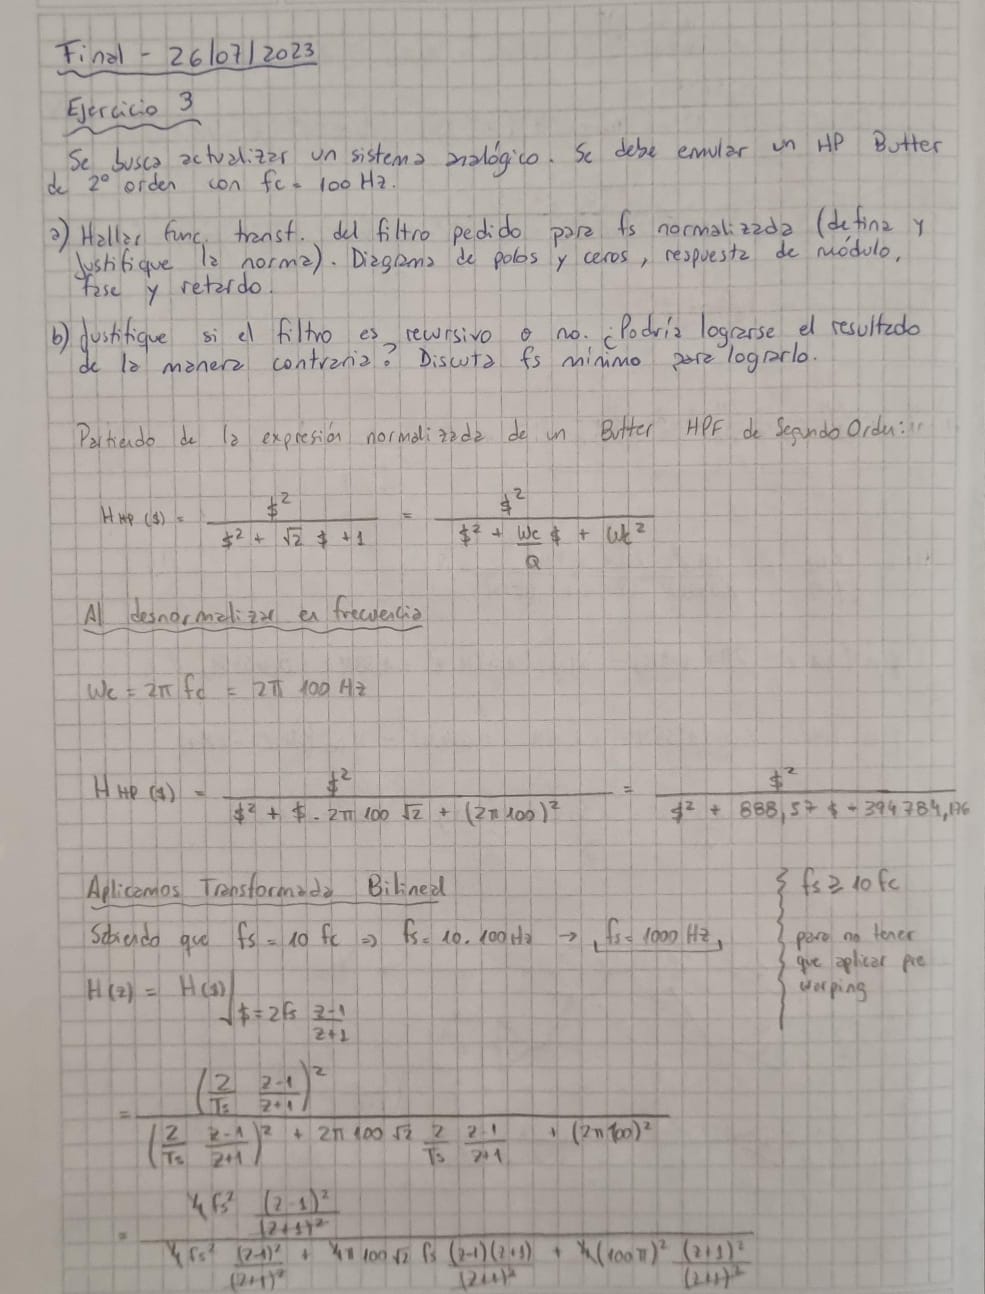 Final - 26/07/2023
Ejercicio 3
Se busca actualizar un sistema analógico. Se debe emular un HP Butter
de 2° orden con fc = 100 Hz.
a) Hallar func. transf. del filtro pedido para fs normalizada (defina y
justifique la norma). Diagrama de polos y ceros, respuesta de módulo,
fase y retardo.
b) Justifique si el filtro es recursivo o no. ¿Podría lograrse el resultado
de la manera contraria? Discuta fs mínimo para lograrlo.
Partiendo de la expresión normalizada de un Butter HPF de Segundo Orden:
H_HP ($) = $² / ($² + √2 $ + 1) = $² / ($² + (Wc/Q) $ + Wc²)
Al desnormalizar en frecuencia
Wc = 2π fc = 2π 100 Hz
H_HP ($) = $² / ($² + $ . 2π 100 √2 + (2π 100)²) = $² / ($² + 888,57 $ + 394784,176)
Aplicamos Transformada Bilineal
Sabiendo que fs = 10 fc => fs = 10.100Hz → fs = 1000 Hz
fs ≥ 10 fc
para no tener
que aplicar pre
warping
H(z) = H($) | $ = 2fs (z-1)/(z+1)
= ((2/Ts) (z-1)/(z+1))² / (((2/Ts) (z-1)/(z+1))² + 2π 100 √2 (2/Ts) (z-1)/(z+1) + (2π100)²)
= (4fs² (z-1)²/(z+1)²) / (4fs² (z-1)²/(z+1)² + 4π 100 √2 fs (z-1)(z+1)/(z+1)² + 4(100π)² (z+1)²/(z+1)²)